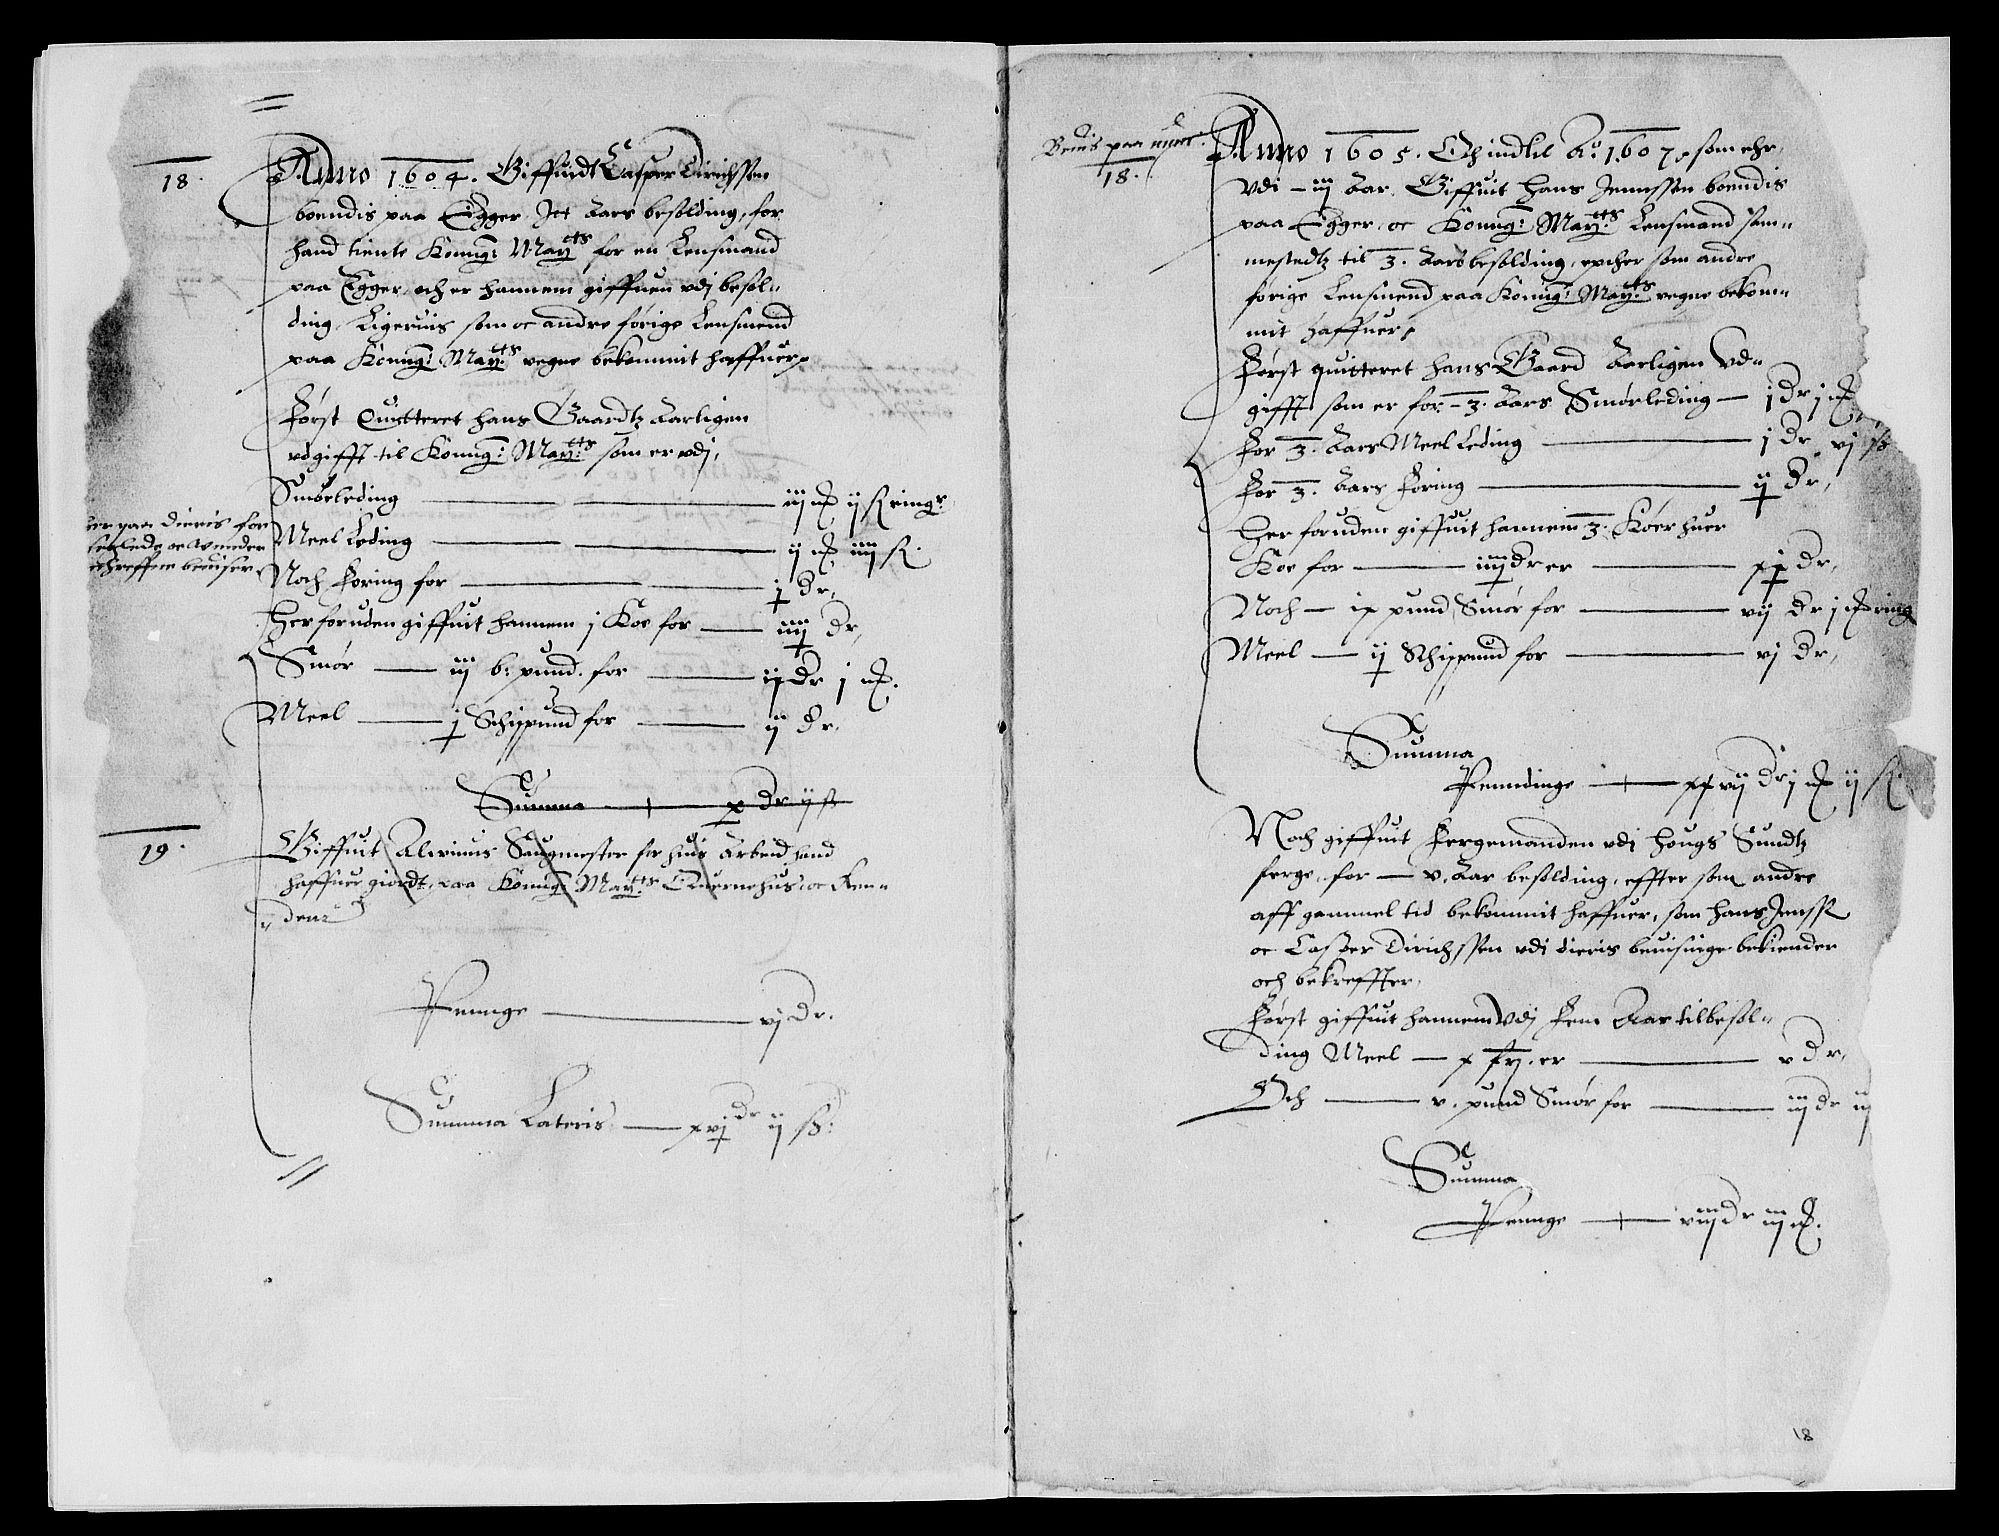 18.
Anno 1604. Giffuidt Casper Dirichssen
boendis paa Egger Itt Aars besolding, for
hand tiente Konng: May:tts for en Lensmand
paa Egger, och er hannem giffuen vdj besol-
ding Ligeruis som oc andre förige Lensmend
paa Konng: May:tts vegne bekommit haffuer
Först Quitteret hans Gaardtz Aarligen
vdgifft til Konng: May:tts som er vdj,
Smörleding — iij ß ring
Meel Leding — ij iiij ß.
er paa dieris for
Noch Foring for — j Dr,
Herforuden giffuit hannem j Koe for — iiij Dr,
Smör — iij b: pund. for — ij Dr j
Meel — j Schippund for — ij Dr.
Summa — x Dr ij ß
19.
Giffuit Alwinus Saugmester for huis Arbeid hand
haffuer giordt, paa Konng: May:tts Quernehus oc Ren-
der
Pennge — vj Dr.
Summa Lateris — xvj Dr ij ß:
Beuis paa
18.
Anno 1605. Och indtil Ao. 1607, som ehr,
vdi — iij Aar, Giffuit Hans Jennssen boendis
paa Egger, oc Konng: May:tts Lensmand sam-
mestedtz til 3. Aars besolding, som andre
forige Lensmend paa Konng: May:tts vegne bekom-
mit haffuer,
Först quitteret hans Gaard Aarligen vd-
gifft som er for — 3. Aars Smörleding — j Dr j
For 3. Aars Meel Leding — j Dr vj ß
For 3. Aars Foring — ij Dr,
Her foruden giffuit hannem 3. Köer huer
Koe for — iiij Dr er — Dr,
Noch — ix pund Smör for — vij Dr j ring
Meel — ij Schippund for — vj Dr,
Summa
Penndinge — xxvij Dr j ij ß
Noch giffuit Fergemanden vdj Hougs Sundtz
ferge, for — v. Aar besolding, effter som andre
aff gammel tid bekommit haffuer, som Hans Jenss
oc Casper Dirichssen vdi dieris beuisinge bekiender
och bekreffter,
Först giffuit hannem vdj Fem Aar til besol-
ding Meel — x er — v Dr,
Och — v. pund Smör for — iij Dr iij
Summa
Pennge — viij Dr iij
18